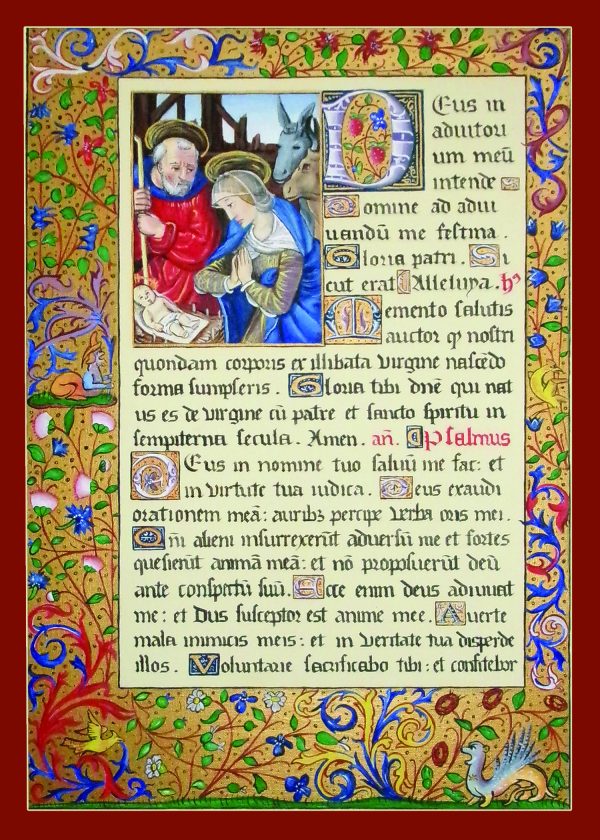 Deus in
adiutori
um meū
intende
Domine ad adiu
uandū me festina.
Gloria patri. Si
cut erat Alleluya. hꝰ
Memento salutis
auctor qꝫ nostri
quondam corporis ex illibata virgine nascēdo
forma sumpseris. Gloria tibi dnē qui nat
us es de virgine cū patre et sancto spiritu in
sempiterna secula. Amen. añ. Psalmus
Deus in nomine tuo saluū me fac: et
in virtute tua iudica. Deus exaudi
orationem meā: auribꝫ percipe verba oris mei.
Qm̄ alieni insurrexerūt aduersū me et fortes
quesierūt animā meā: et nō proposuerūt deū
ante conspectū suū. Ecce enim deus adiuuat
me: et Dus susceptor est anime mee. Auerte
mala inimicis meis: et in veritate tua disperde
illos. Voluntarie sacrificabo tibi: et confitebor